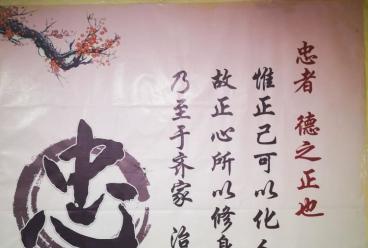 忠者 德之正也
惟正己可以化
故正心所以修身
乃至于齐家 治
忠